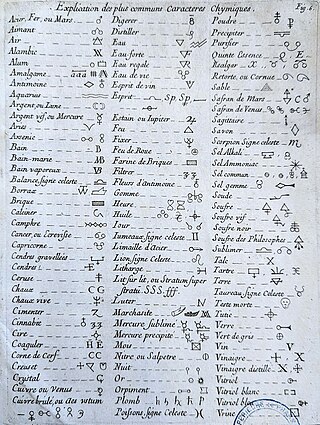 Explication des plus communs Caracteres Chymiques.
Fig. 6.
Acier, Fer, ou Mars
Aimant
Air
Alambic
Alum
Amalgame aaa
Antimoine
Aquarius
Argent, ou Lune
Argent vif, ou Mercure
Aries
Arsenic
Bain
Bain-marie MB
Bain vaporeux VB
Balance, signe celeste
Borraz
Brique
Calciner
Camphre
Cancer, ou Ecrevisse
Capricorne
Cendres gravellées
Cendres
Ceruse
Chaux
Chaux vive
Cimenter
Cinnabre
Cire
Coaguler
Corne de Cerf CC
Creuset
Crystal
Cuivre ou Venus
Cuivre brulé, ou æs ustum
Digerer
Distiller
Eau
Eau-forte
Eau regale
Eau de vie
Esprit de vin
Esprit Sp.
Estain ou Jupiter
Feu
Fixer
Feu de Roue
Farine de Briques
Filtrer
Fleurs d'Antimoine
Gomme
Heure
Huile
Jour
Jumeaux, signe celeste
Limaille d'Acier
Lion, signe celeste
Litharge
Lit sur lit, ou Stratum super
strato. SSS. fff
Luter
Marchasite
Mercure sublimé
Mercure precipité
Mois
Nitre ou Salpetre
Nuit
Or
Orpiment
Plomb
Poissons, signe Celeste
Poudre
Precipiter
Purifier
Quinte Essence Q.E.
Realger
Retorte, ou Cornue
Sable
Safran de Mars
Safran de Venus
Sagitaire
Savon
Scorpion Signe celeste
Sel Alkali
Sel Ammoniac
Sel commun
Sel gemme
Soude
Soufre
Soufre vif
Soufre noir
Soufre des Philosophes
Sublimer
Talc X
Tartre
Terre
Taureau, signe Celeste
Teste morte
Tutie
Verre
Vert de gris
Vin
Vinaigre
Vinaigre distillé
Vitriol
Vitriol blanc
Vitriol bleu
Urine